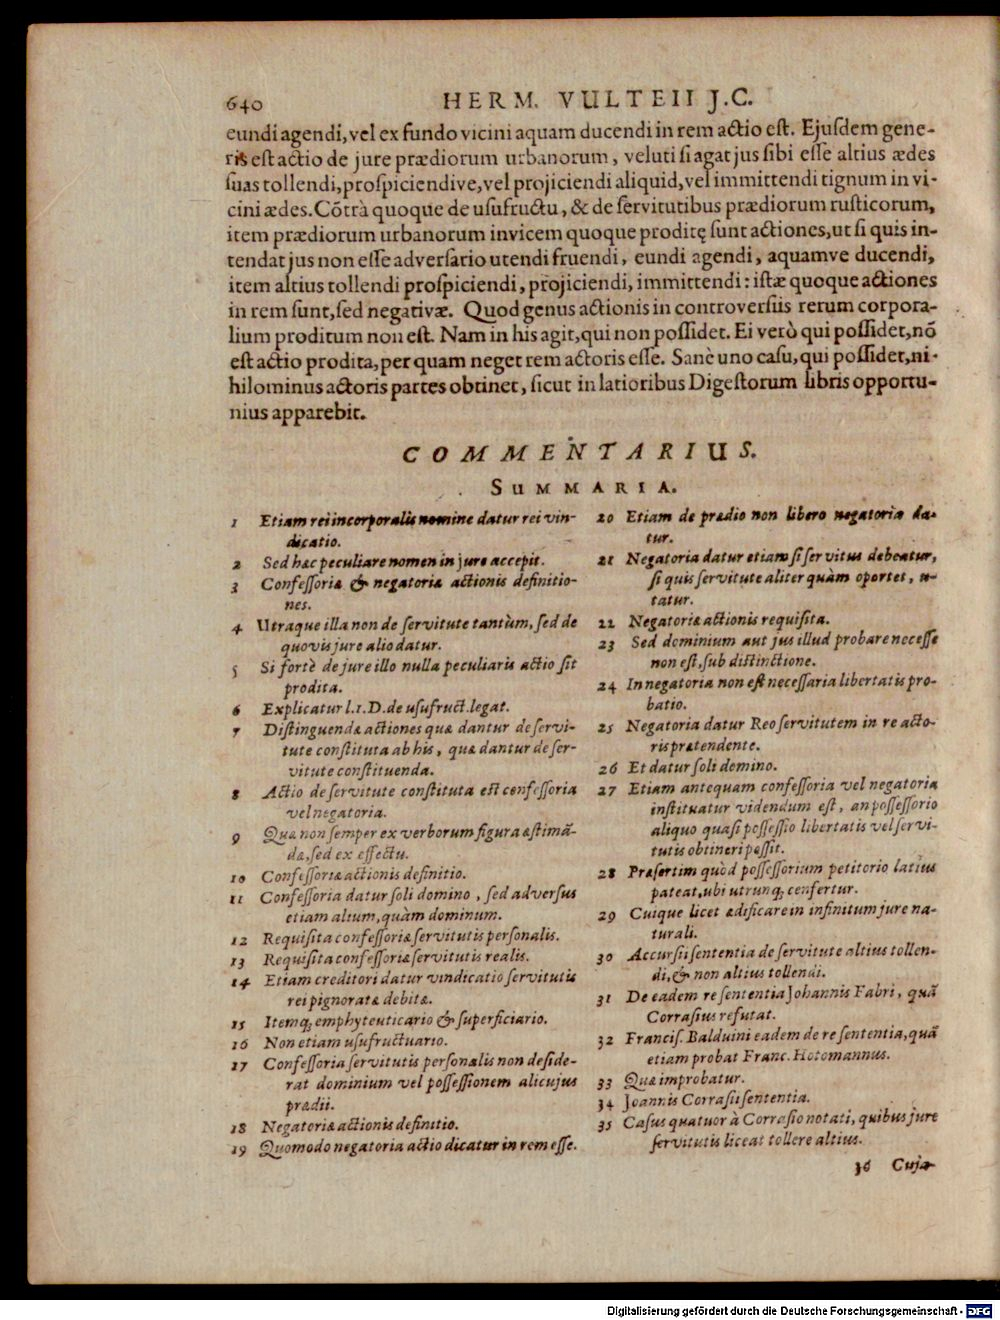 640 HERM. VULTEII J.C.
eundi agendi, vel ex fundo vicini aquam ducendi in rem actio est. Ejusdem gene-
ris est actio de jure prædiorum urbanorum, veluti si agat jus sibi esse altius ædes
suas tollendi, prospiciendive, vel projiciendi aliquid, vel immittendi tignum in vi-
cini ædes. Cõtrà quoque de usufructu, & de servitutibus prædiorum rusticorum,
item prædiorum urbanorum invicem quoque proditę sunt actiones, ut si quis in-
tendat jus non esse adversario utendi fruendi, eundi agendi, aquamve ducendi,
item altius tollendi prospiciendi, projiciendi, immittendi: istæ quoque actiones
in rem sunt, sed negativæ. Quod genus actionis in controversiis rerum corpora-
lium proditum non est. Nam in his agit, qui non possidet. Ei verò qui possidet, nõ
est actio prodita, per quam neget rem actoris esse. Sanè uno casu, qui possidet, ni-
hilominus actoris partes obtinet, sicut in latioribus Digestorum libris opportu-
nius apparebit.
COMMENTARIUS.
SUMMARIA.
1 Etiam rei incorporalis nomine datur rei vin-
dicatio.
2 Sed hæc peculiare nomen in jure accepit.
3 Confessoriæ & negatoriæ actionis definitio-
nes.
4 Utraque illa non de servitute tantùm, sed de
quovis jure alio datur.
5 Si fortè de jure illo nulla peculiaris actio sit
prodita.
6 Explicatur l.1.D. de usufruct. legat.
7 Distinguendæ actiones quæ dantur de servi-
tute constituta ab his, quæ dantur de ser-
vitute constituenda.
8 Actio de servitute constituta est confessoria
vel negatoria.
9 Quæ non semper ex verborum figura æstimã-
dæ, sed ex effectu.
10 Confessoriæ actionis definitio.
11 Confessoria datur soli domino, sed adversus
etiam alium, quàm dominum.
12 Requisita confessoriæ servitutis personalis.
13 Requisita confessoriæ servitutis realis.
14 Etiam creditori datur vindicatio servitutis
rei pignoratæ debitæ.
15 Itemq; emphyteuticario & superficiario.
16 Non etiam usufructuario.
17 Confessoria servitutis personalis non deside-
rat dominium vel possessionem alicujus
prædii.
18 Negatoriæ actionis definitio.
19 Quomodo negatoria actio dicatur in rem esse.
20 Etiam de prædio non libero negatoria da-
tur.
21 Negatoria datur etiam si servitus debeatur,
si quis servitute aliter quàm oportet, u-
tatur.
22 Negatoriæ actionis requisita.
23 Sed dominium aut jus illud probare necesse
non est, sub distinctione.
24 In negatoria non est necessaria libertatis pro-
batio.
25 Negatoria datur Reo servitutem in re acto-
ris prætendente.
26 Et datur soli domino.
27 Etiam antequam confessoria vel negatoria
instituatur videndum est, an possessorio
aliquo quasi possessio libertatis vel servi-
tutis obtineri possit.
28 Præsertim quòd possessorium petitorio latius
pateat, ubi utrunq; censertur.
29 Cuique licet ædificare in infinitum jure na-
turali.
30 Accursii sententia de servitute altius tollen-
di, & non altius tollendi.
31 De eadem re sententia Johannis Fabri, quã
Corrasius refutat.
32 Francis. Balduini eadem de re sententia, quã
etiam probat Franc. Hotomannus.
33 Quæ improbatur.
34 Joannis Corrasii sententia.
35 Casus quatuor à Corrasio notati, quibus jure
servitutis liceat tollere altius.
36 Cuja-
Digitalisierung gefördert durch die Deutsche Forschungsgemeinschaft - DFG